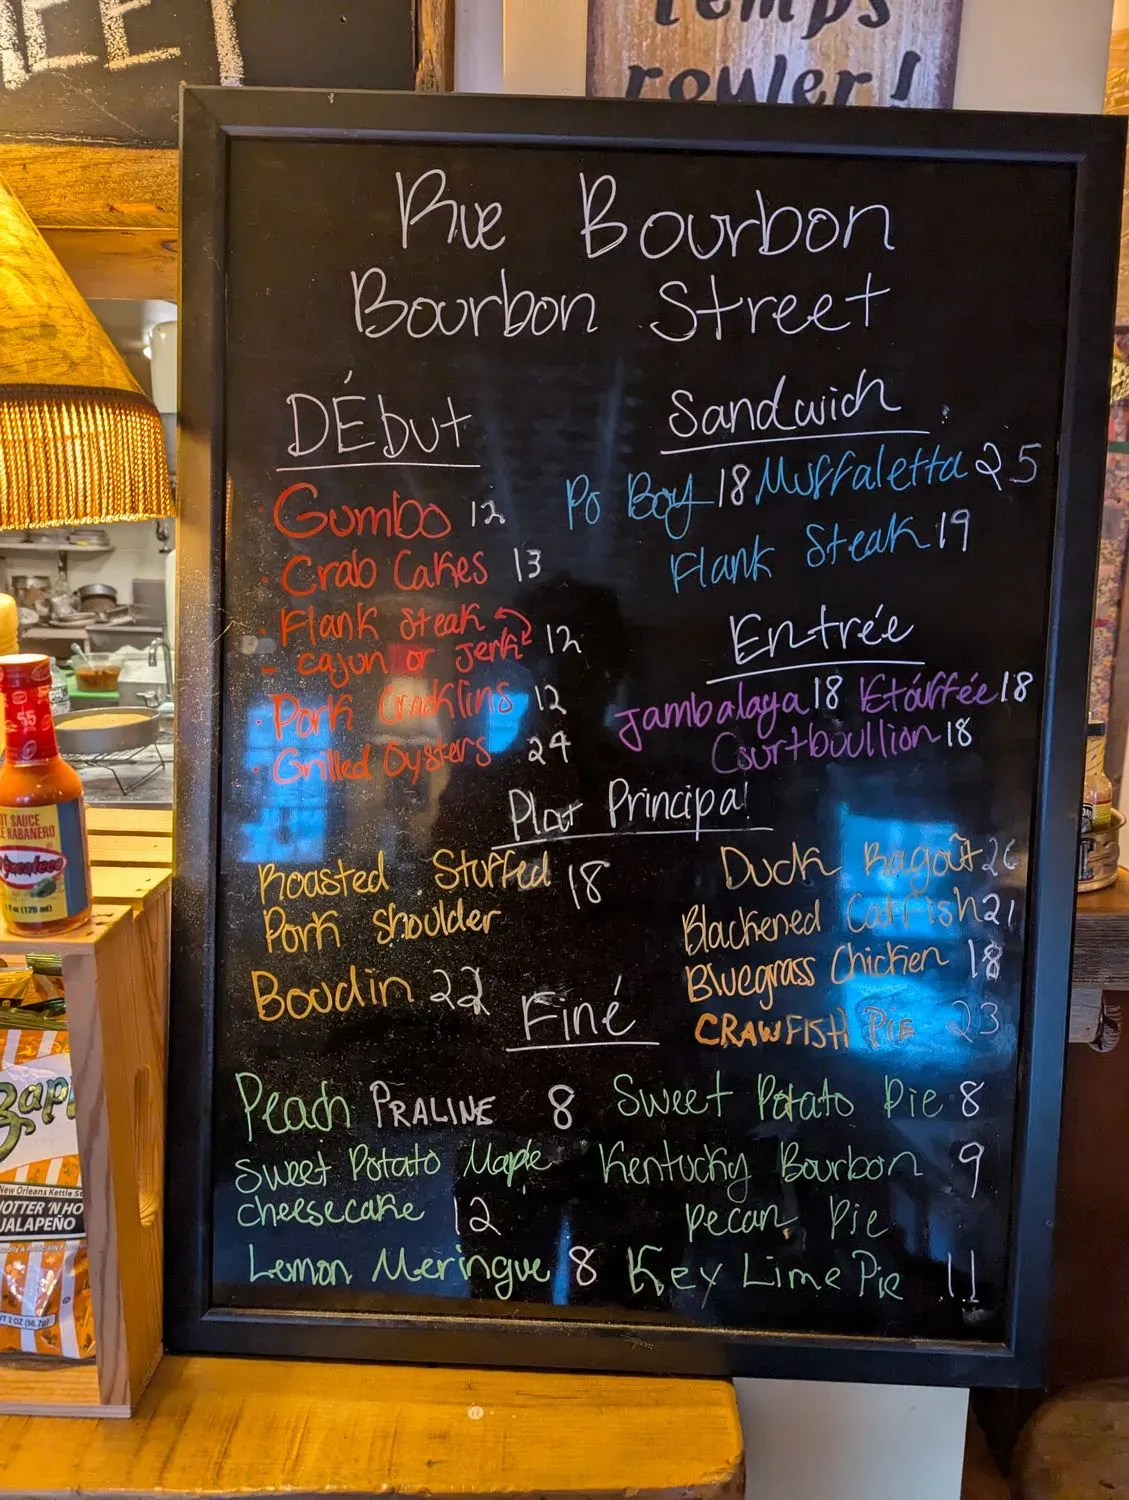 EET
Temps
rouler!
Rue Bourbon
Bourbon Street
DÉbut
Gumbo 12
Crab Cakes 13
Flank Steak
- Cajun or Jerk 12
Pork Cracklins 12
Grilled Oysters 24
Sandwich
Po Boy 18 Muffaletta 25
Flank Steak 19
Entrée
Jambalaya 18 Etóuffée 18
Courtboullion 18
Plat Principal
Roasted Stuffed 18
Pork Shoulder
Boudin 22
Duck Ragoût
Blackened Catfish 21
Bluegrass Chicken 18
CRAWFISH PIE 23
Finé
Peach PRALINE 8
Sweet Potato Maple
Cheesecake 12
Lemon Meringue 8
Sweet Potato Pie 8
Kentucky Bourbon 9
Pecan Pie
Key Lime Pie 11
HOT SAUCE
HABANERO
Yucateco
Zapp
New Orleans Kettle
HOTTER 'N HO
JALAPEÑO